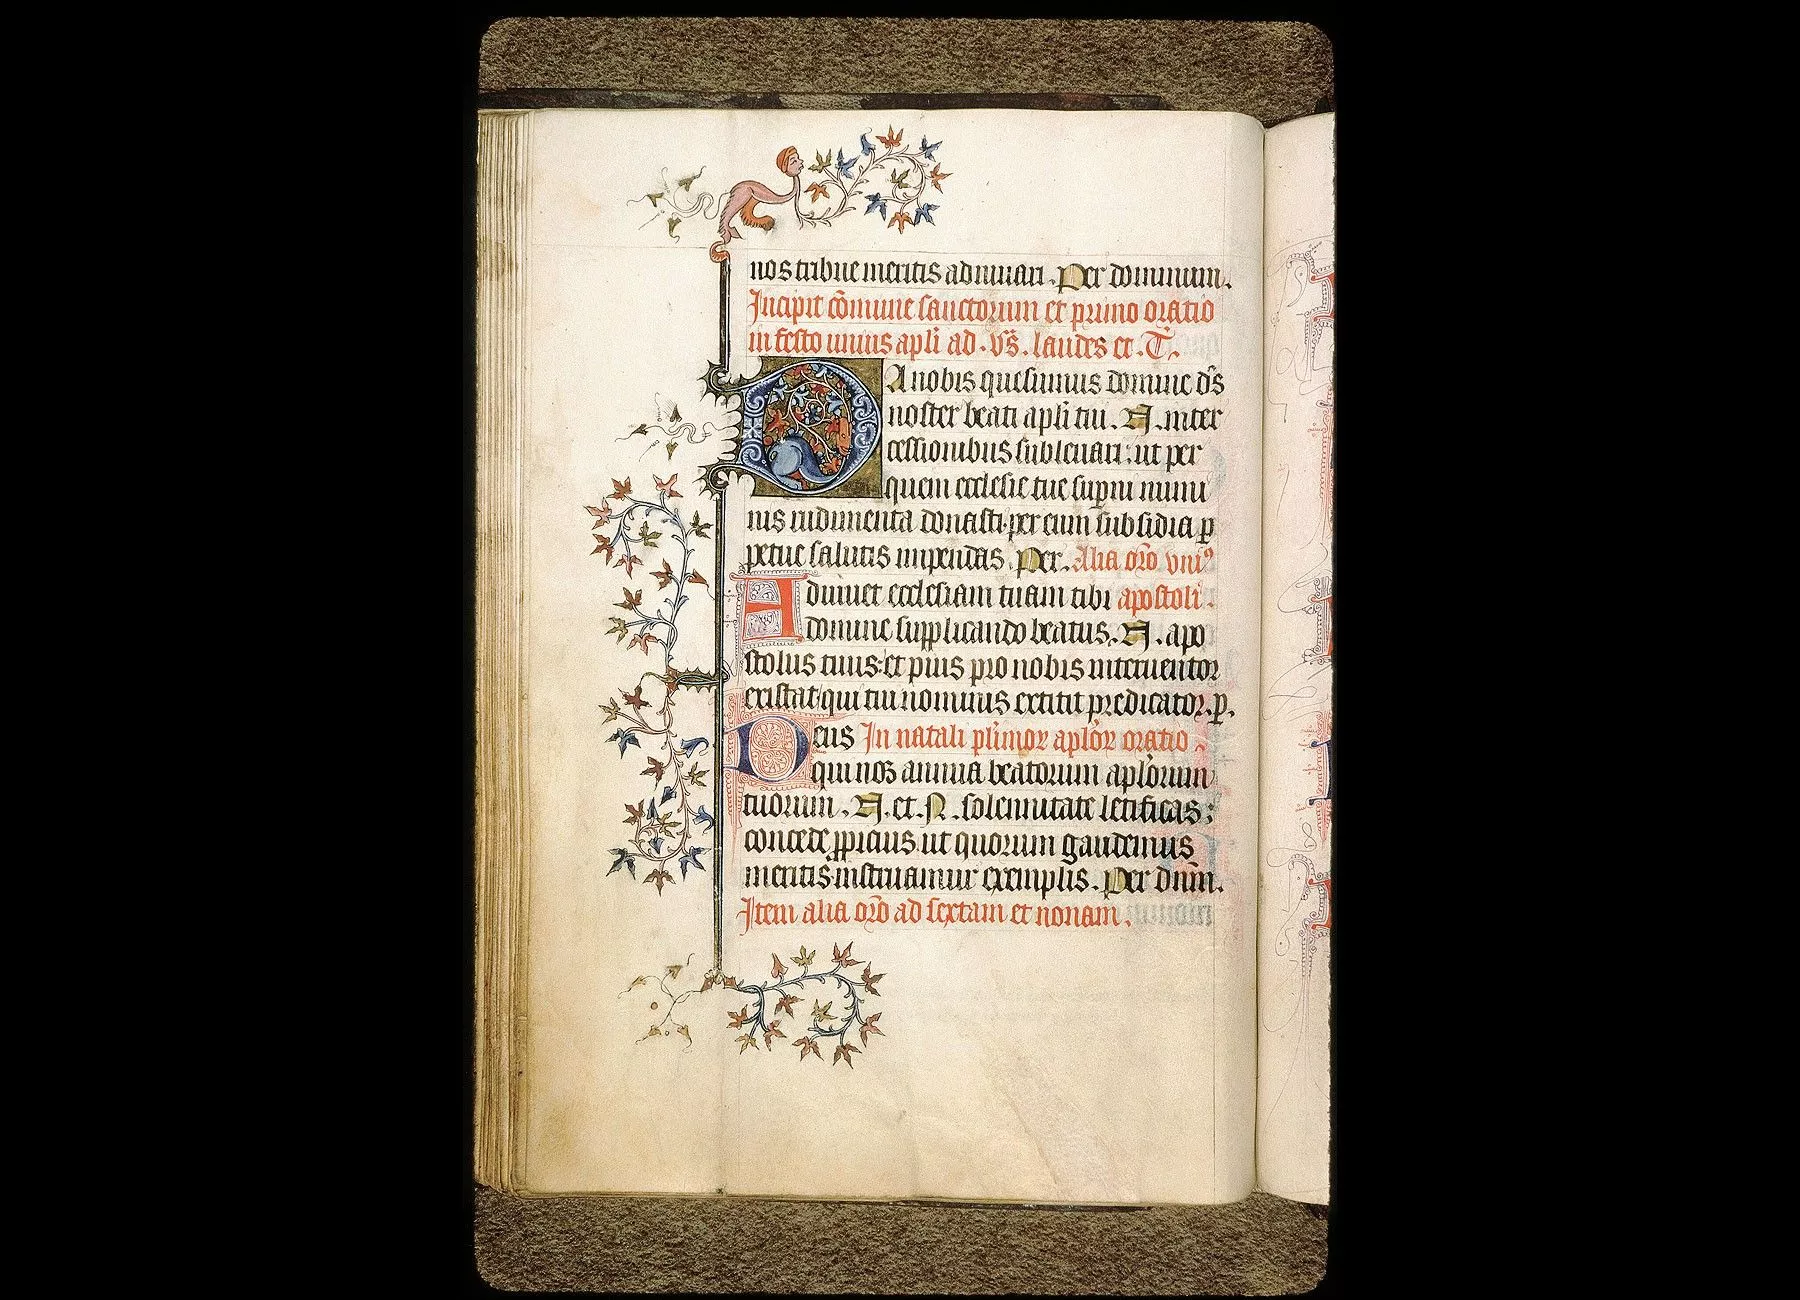 nos tribue meritis adiuuari. Per dominum.
Incipit cōmune sanctorum et primo oratio
in festo unius apl̄i ad. vs̄. laudes et. T̄.
DA nobis quesumus domine ds̄
noster beati apl̄i tui. N. inter
cessionibus subleuari: ut per
quem ecclesie tue supni muni
nis rudimenta donasti: per eum subsidia ꝑ
petue salutis impendas. Per. Alia oro uniꝰ
Adiuuet ecclesiam tuam tibi apostoli.
domine supplicando beatus. N. apo
stolus tuus: et pius pro nobis interuentor
existat qui tui nominis extitit predicator. ꝑ.
Deus In natali pl̄imoꝝ apl̄oꝝ oratio
qui nos annua beatorum apl̄orum
tuorum. N. et. N. solennitate letificas:
concede ꝓpicius ut quorum gaudemus
meritis instruamur exemplis. Per dnm̄.
Item alia oro ad sextam et nonam.